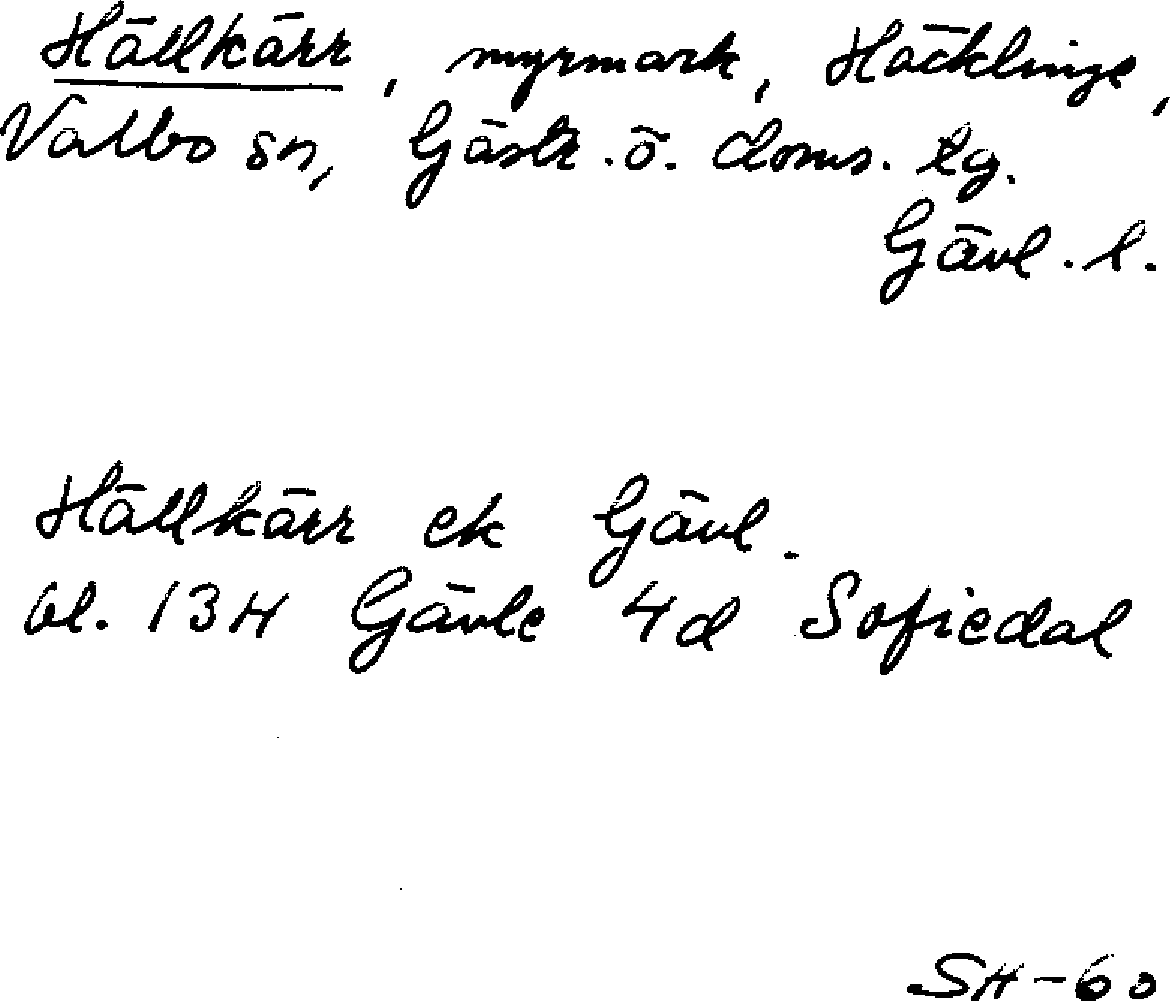 Hällkärr, myrmark, Häcklinge,
Valbo sn, Gästr. ö. doms. lg.
Gävl. l.
Hällkärr ek Gävl.
bl. 13H Gävle 4d Sofiedal
SH-60